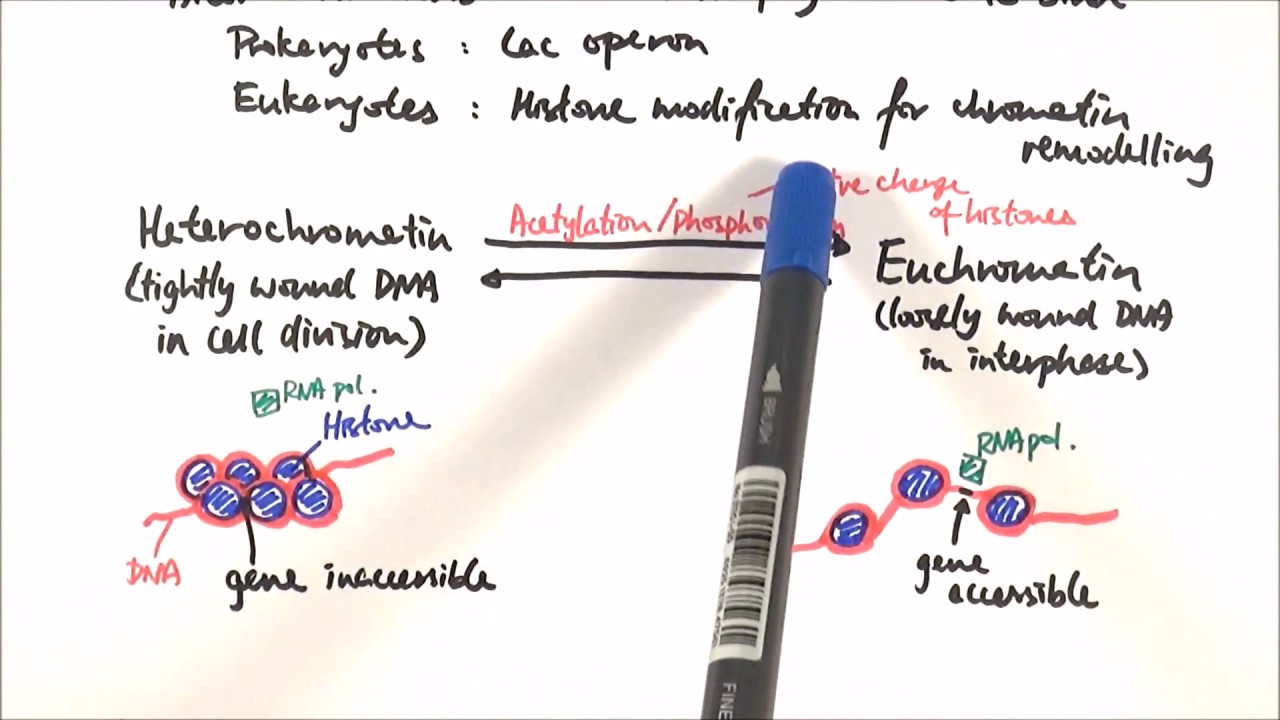 Prokaryotes : Lac operon
Eukaryotes : Histone modification for chromatin
remodelling
ve charge
of histones
Acetylation/
Heterochromatin
(tightly wound DNA
in cell division)
Euchromatin
(loosely wound DNA
in interphase)
RNA pol.
Histone
DNA
gene inaccessible
RNA pol.
gene
accessible
BRUSH
FINE